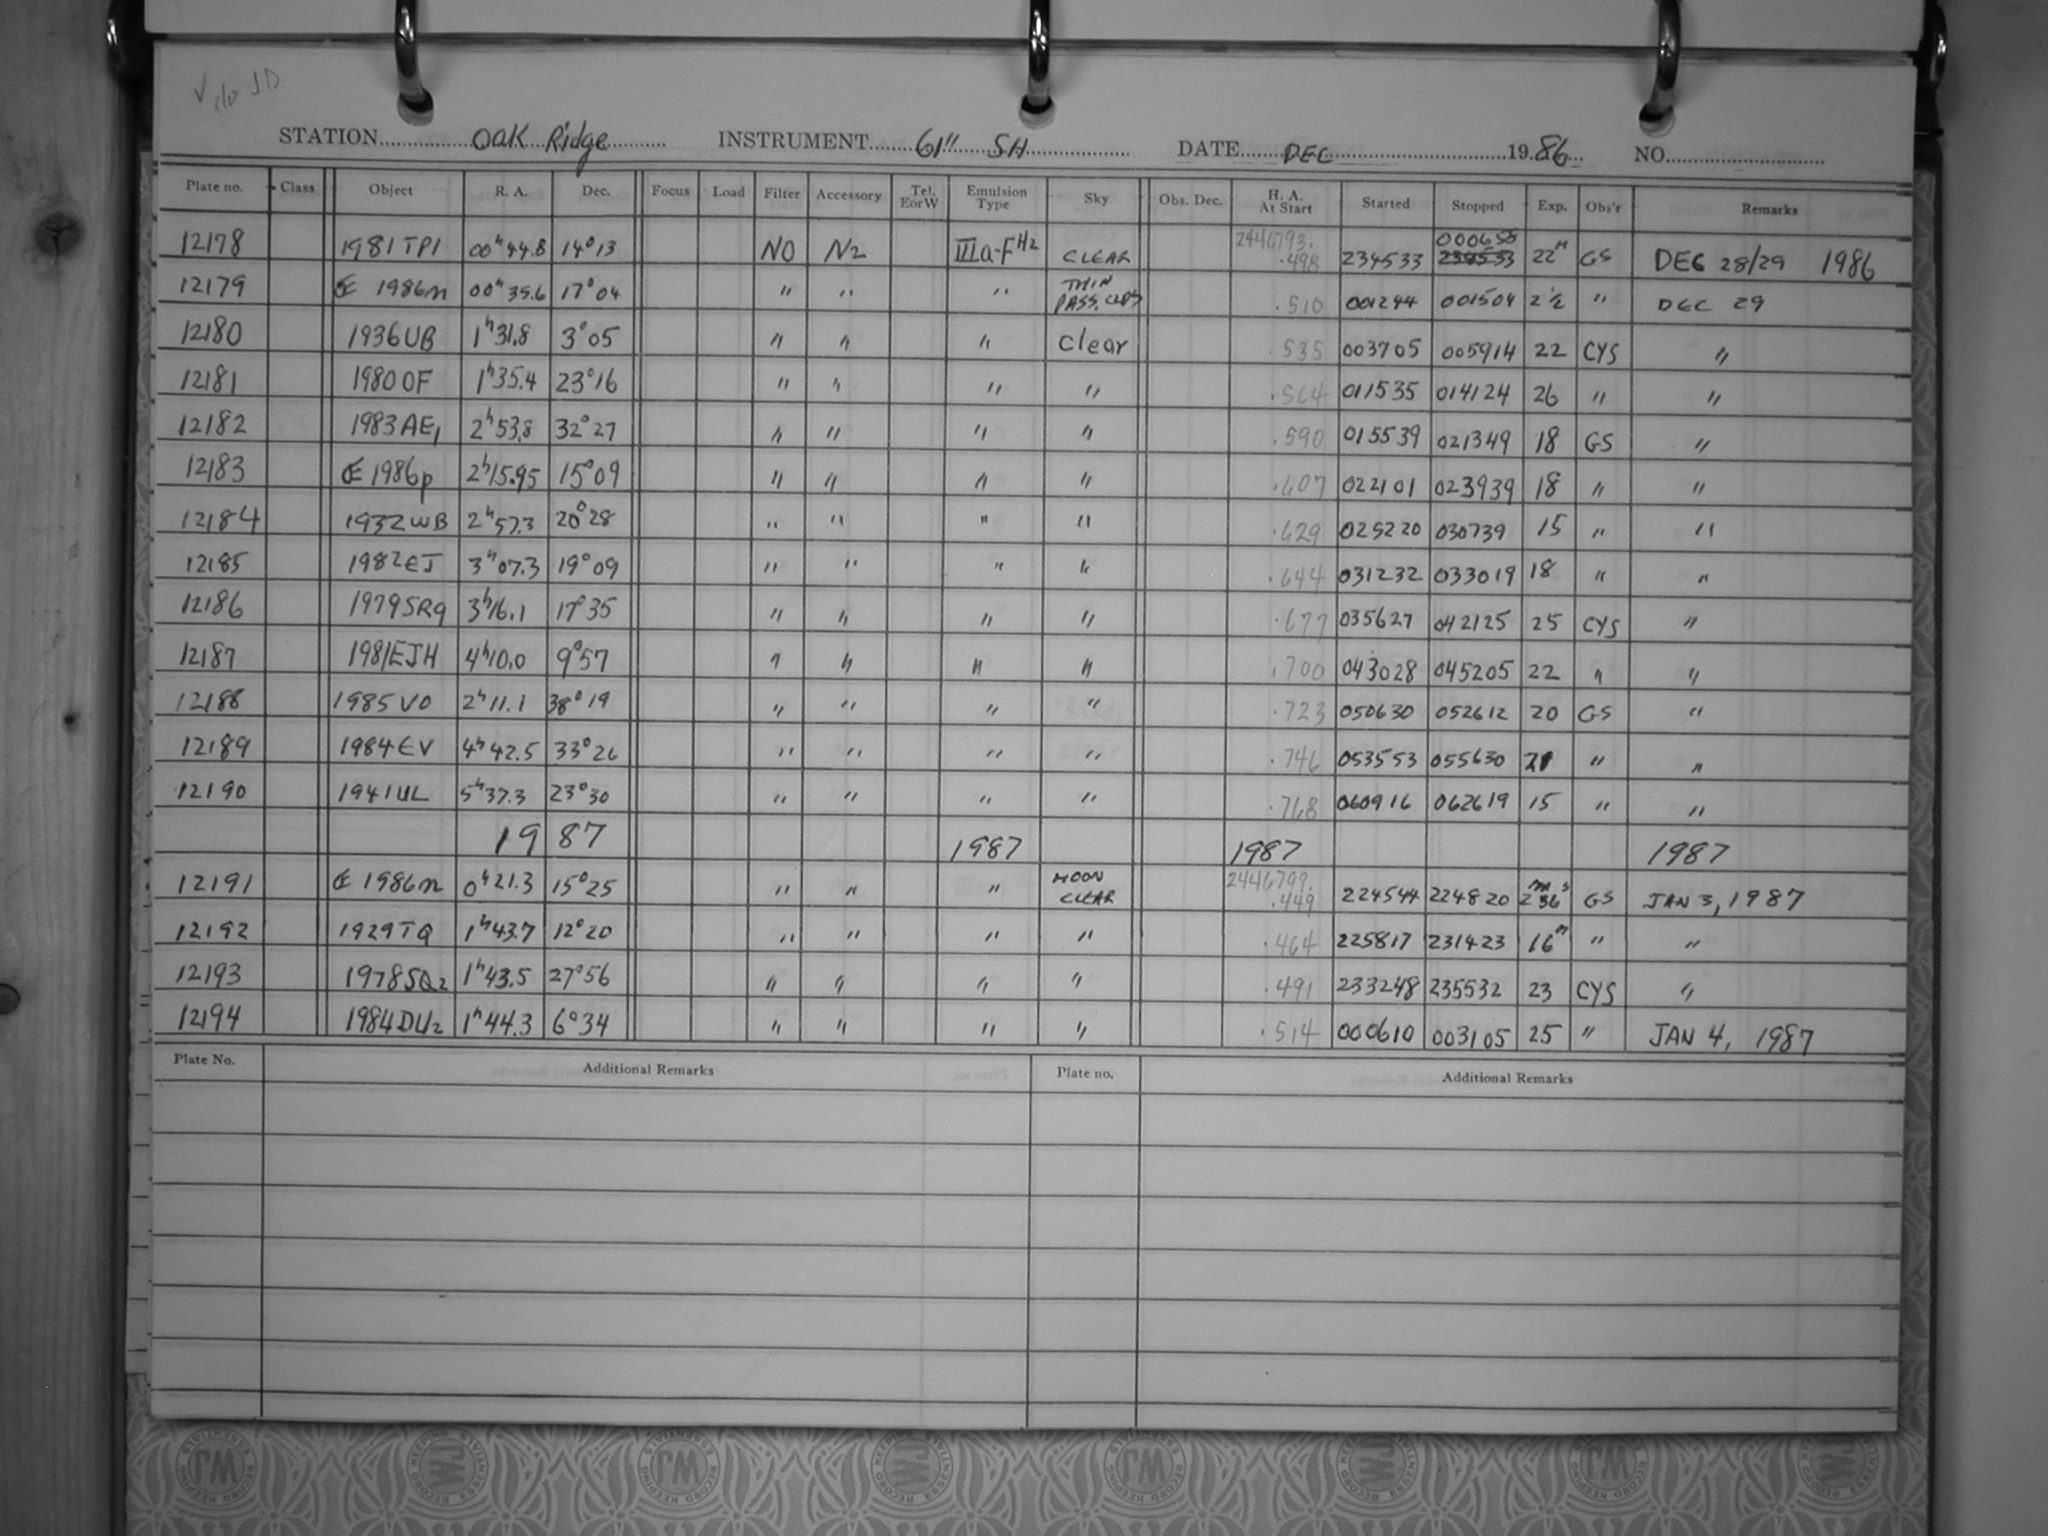 √ do JD
STATION OAK Ridge INSTRUMENT 61" SH DATE DEC 1986 NO.
Plate no. Class Object R. A. Dec. Focus Load Filter Accessory Tel. E or W Emulsion Type Sky Obs. Dec. H. A. At Start Started Stopped Exp. Obs'r Remarks
12178 1981TP1 00ʰ44.8 14°13 NO N2 IIIa-F H2 CLEAR 2446793. .498 234533 000655 22ᴹ GS DEC 28/29 1986
12179 1986n 00ʰ35.6 17°04 " " " THIN PASS. CLDS .510 001244 001504 2½ " DEC 29
12180 1936UB 1ʰ31.8 3°05 " " " Clear .535 003705 005914 22 CYS "
12181 1980OF 1ʰ35.4 23°16 " " " " .564 011535 014124 26 " "
12182 1983AE₁ 2ʰ53.8 32°27 " " " " .590 015539 021349 18 GS "
12183 1986p 2ʰ15.95 15°09 " " " " .607 022101 023939 18 " "
12184 1932WB 2ʰ57.3 20°28 " " " " .629 025220 030739 15 " "
12185 1982EJ 3ʰ07.3 19°09 " " " " .644 031232 033019 18 " "
12186 1979SR9 3ʰ16.1 17°35 " " " " .677 035627 042125 25 CYS "
12187 1981EJH 4ʰ10.0 9°57 " " " " .700 043028 045205 22 " "
12188 1985VO 2ʰ11.1 38°19 " " " " .723 050630 052612 20 GS "
12189 1984EV 4ʰ42.5 33°26 " " " " .746 053553 055630 21 " "
12190 1941UL 5ʰ37.3 23°30 " " " " .768 060916 062619 15 " "
1987 1987 1987 1987
12191 1986n 0ʰ21.3 15°25 " " " MOON CLEAR 2446799. .449 224544 224820 2ᵐ36ˢ GS JAN 3, 1987
12192 1929TQ 1ʰ43.7 12°20 " " " " .464 225817 231423 16ᵐ " "
12193 1978SQ2 1ʰ43.5 27°56 " " " " .491 233248 235532 23 CYS "
12194 1984DU2 1ʰ44.3 6°34 " " " " .514 000610 003105 25 " JAN 4, 1987
Plate No. Additional Remarks Plate no. Additional Remarks